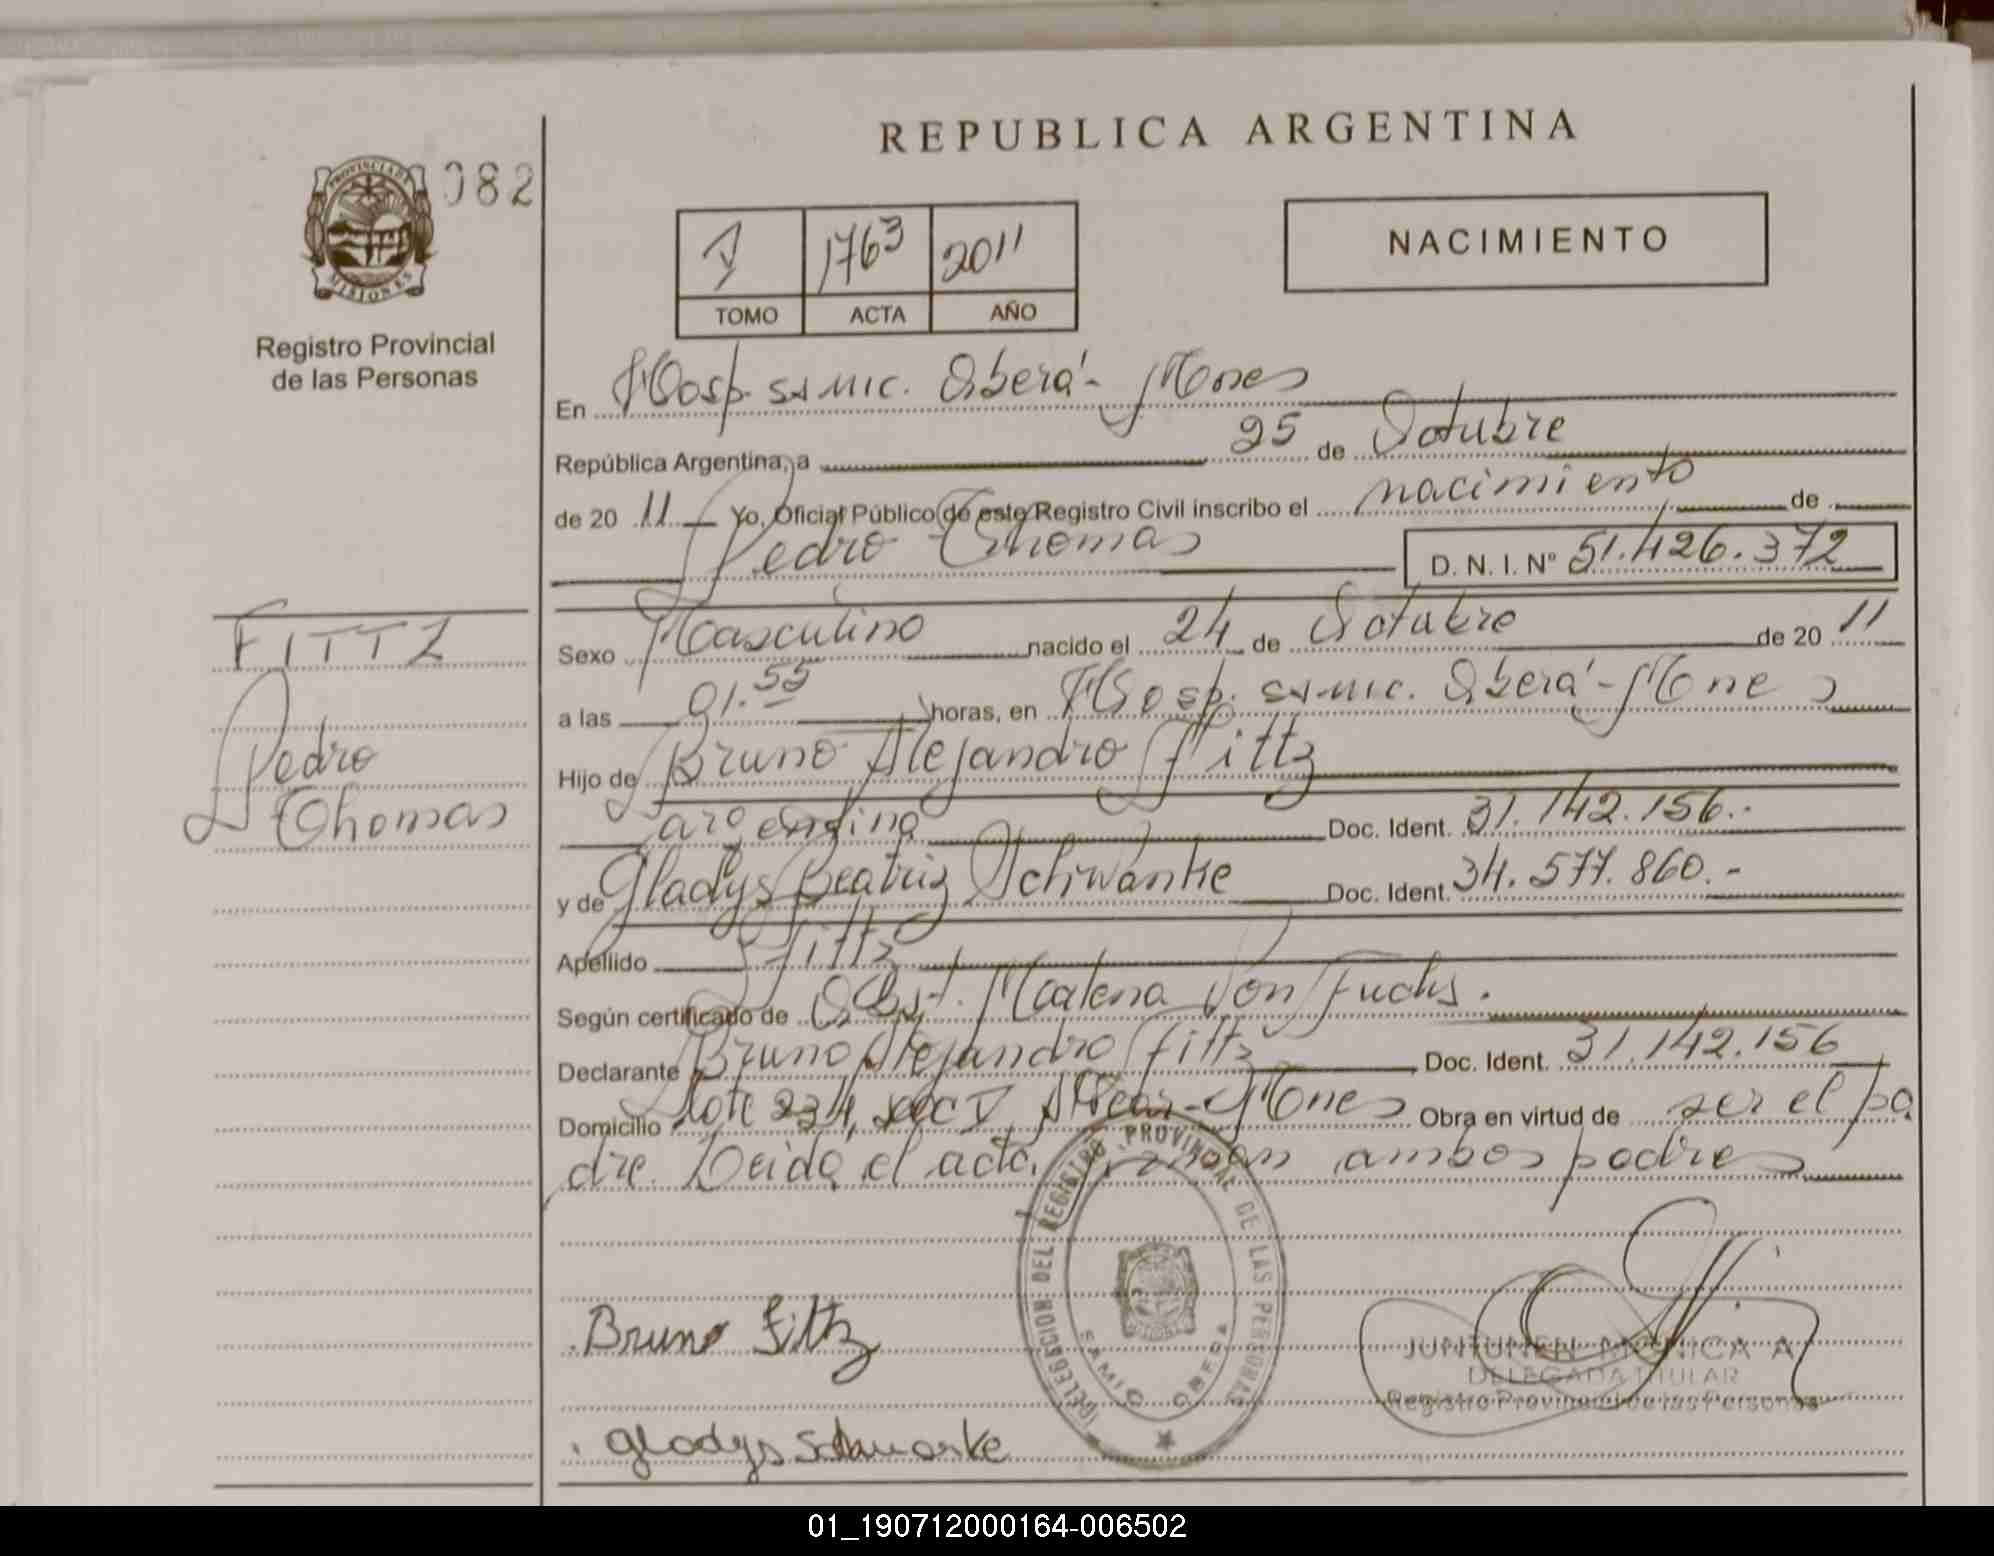 REPUBLICA ARGENTINA
PROVINCIA DE
MISIONES
082
Registro Provincial
de las Personas
V 1763 2011
TOMO ACTA AÑO
NACIMIENTO
En Hosp. SAMIC. Oberá - Mones
República Argentina, a 25 de Octubre
de 20 11 Yo, Oficial Público de este Registro Civil inscribo el nacimiento de
Pedro Thomas D. N. I. N° 51.426.372
FITTZ
Pedro
Thomas
Sexo Masculino nacido el 24 de Octubre de 20 11
a las 01.55 horas, en Hosp. SAMIC. Oberá - Mones
Hijo de Bruno Alejandro Fittz
argentino Doc. Ident. 31.142.156.-
y de Gladys Beatriz Schwanke Doc. Ident. 34.577.860.-
Apellido Fittz
Según certificado de Obst. Malena Von Fuchs.
Declarante Bruno Alejandro Fittz Doc. Ident. 31.142.156
Domicilio Lote 234, secc V, Alvear - Mones Obra en virtud de ser el pa
dre. Leida el acta, firman ambos padres
DELEGACION DEL REGISTRO PROVINCIAL DE LAS PERSONAS
SAMIC OBERA
Bruno Fittz
Gladys Schwanke
JUNTUNEN MONICA A
DELEGADA TITULAR
Registro Provincial de las Personas
01_190712000164-006502